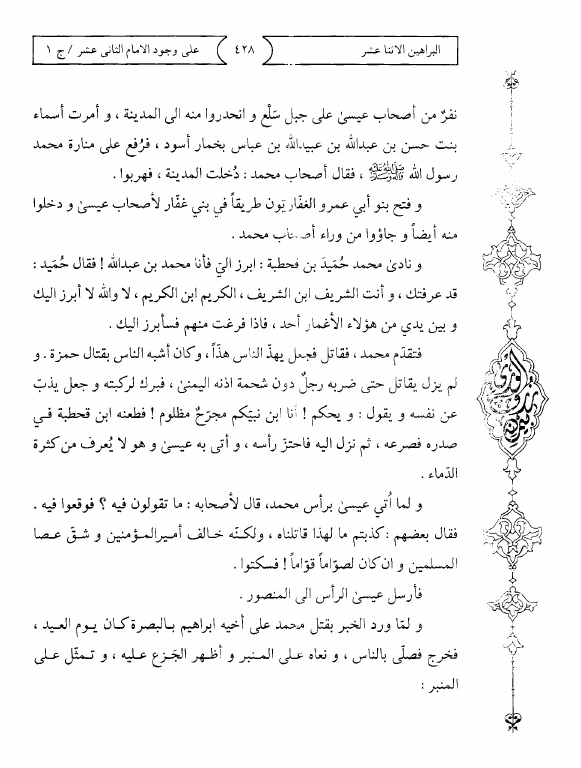 البراهين الاثنا عشر
٤٢٨
على وجود الامام الثانى عشر / ج ١
نفرٌ من أصحاب عيسىٰ على جبل سَلْع و انحدروا منه الى المدينة ، و أمرت أسماء
بنت حسن بن عبدالله بن عبيدالله بن عباس بخمار أسود ، فرُفع على منارة محمد
رسول الله ﷺ ، فقال أصحاب محمد : دُخلت المدينة ، فهربوا .
و فتح بنو أبي عمرو الغفاريّون طريقاً في بني غفّار لأصحاب عيسىٰ و دخلوا
منه أيضاً و جاؤوا من وراء أصحاب محمد .
و نادىٰ محمد حُمَيدَ بن قحطبة : ابرز اليّ فأنا محمد بن عبدالله ! فقال حُمَيد :
قد عرفتك ، و أنت الشريف ابن الشريف ، الكريم ابن الكريم ، لا والله لا أبرز اليك
و بين يدي من هؤلاء الأغمار أحد ، فاذا فرغت منهم فسأبرز اليك .
فتقدّم محمد ، فقاتل فجعل يهذّ الناس هذّاً ، وكان أشبه الناس بقتال حمزة . و
لم يزل يقاتل حتى ضربه رجلٌ دون شحمة اذنه اليمنىٰ ، فبرك لركبته و جعل يذبّ
عن نفسه و يقول : و يحكم ! أنا ابن نبيّكم مجرّحٌ مظلوم ! فطعنه ابن قحطبة في
صدره فصرعه ، ثم نزل اليه فاحتزّ رأسه ، و أتى به عيسىٰ و هو لا يُعرف من كثرة
الدّماء .
و لما أتي عيسىٰ برأس محمد، قال لأصحابه : ما تقولون فيه ؟ فوقعوا فيه .
فقال بعضهم : كذبتم ما لهذا قاتلناه ، ولكنّه خالف أميرالمؤمنين و شقّ عصا
المسلمين و ان كان لصوّاماً قوّاماً ! فسكتوا .
فأرسل عيسىٰ الرأس الى المنصور .
و لمّا ورد الخبر بقتل محمد على أخيه ابراهيم بالبصرة كان يوم العيد ،
فخرج فصلّى بالناس ، و نعاه على المنبر و أظهر الجَزع عليه ، و تمثّل على
المنبر :